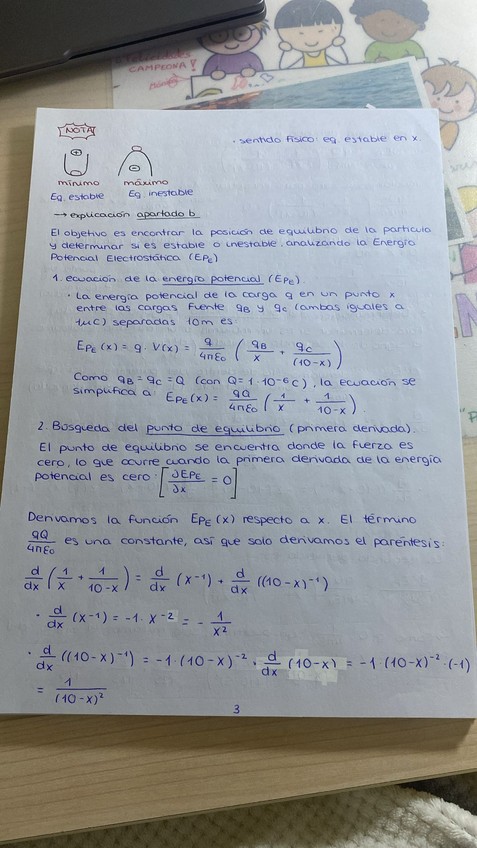 Felicidades
CAMPEONA!
NOTA
· sentido físico: eq. estable en x.
mínimo máximo
Eq. estable Eq. inestable
→ explicación apartado b
El objetivo es encontrar la posición de equilibrio de la partícula
y determinar si es estable o inestable, analizando la Energía
Potencial Electrostática (EPE)
1. ecuación de la energía potencial (EPE).
· La energía potencial de la carga q en un punto x
entre las cargas fuente qB y qC (ambas iguales a
1μC) separadas 10m es:
EPE (x) = q · V(x) = q/4πε0 (qB/x + qC/(10-x))
Como qB = qC = Q (con Q = 1·10⁻⁶ C), la ecuación se
simplifica a: EPE(x) = qQ/4πε0 (1/x + 1/10-x).
2. Búsqueda del punto de equilibrio (primera derivada).
El punto de equilibrio se encuentra donde la fuerza es
cero, lo que ocurre cuando la primera derivada de la energía
potencial es cero: [∂EPE/∂x = 0]
Derivamos la función EPE (x) respecto a x. El término
qQ/4πε0 es una constante, así que solo derivamos el paréntesis:
d/dx (1/x + 1/10-x) = d/dx (x⁻¹) + d/dx ((10-x)⁻¹)
· d/dx (x⁻¹) = -1 · x⁻² = - 1/x²
· d/dx ((10-x)⁻¹) = -1·(10-x)⁻² · d/dx (10-x) = -1·(10-x)⁻²·(-1)
= 1/(10-x)²
3